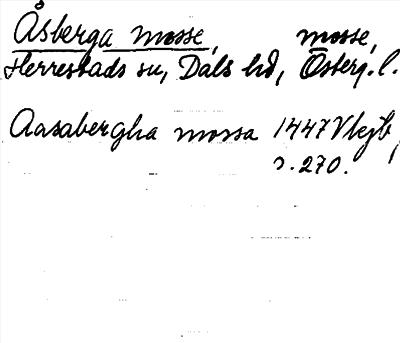 Åsberga mosse, mosse,
Herrestads sn, Dals hd, Österg. l.
Aasabergha mossa 1447 Vkjb,
s. 270.